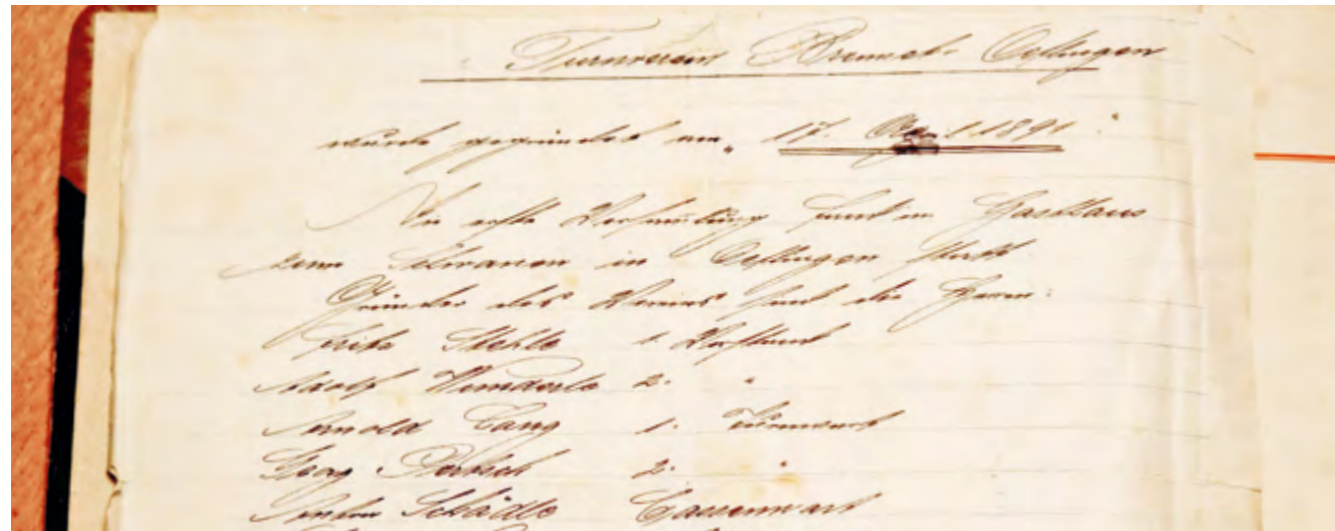 Turnverein Brennet-Oeflingen
wurde gegründet am 17. April 1891.
Die erste Versammlung fand im Gasthaus
zum Schwanen in Oeflingen statt
Gründer des Vereins sind die Herren:
Fritz Stehle 1. Vorstand
Adolf Wunderle 2. "
Arnold Lang 1. Turnwart
Georg 2. "
Schädle Cassenwart